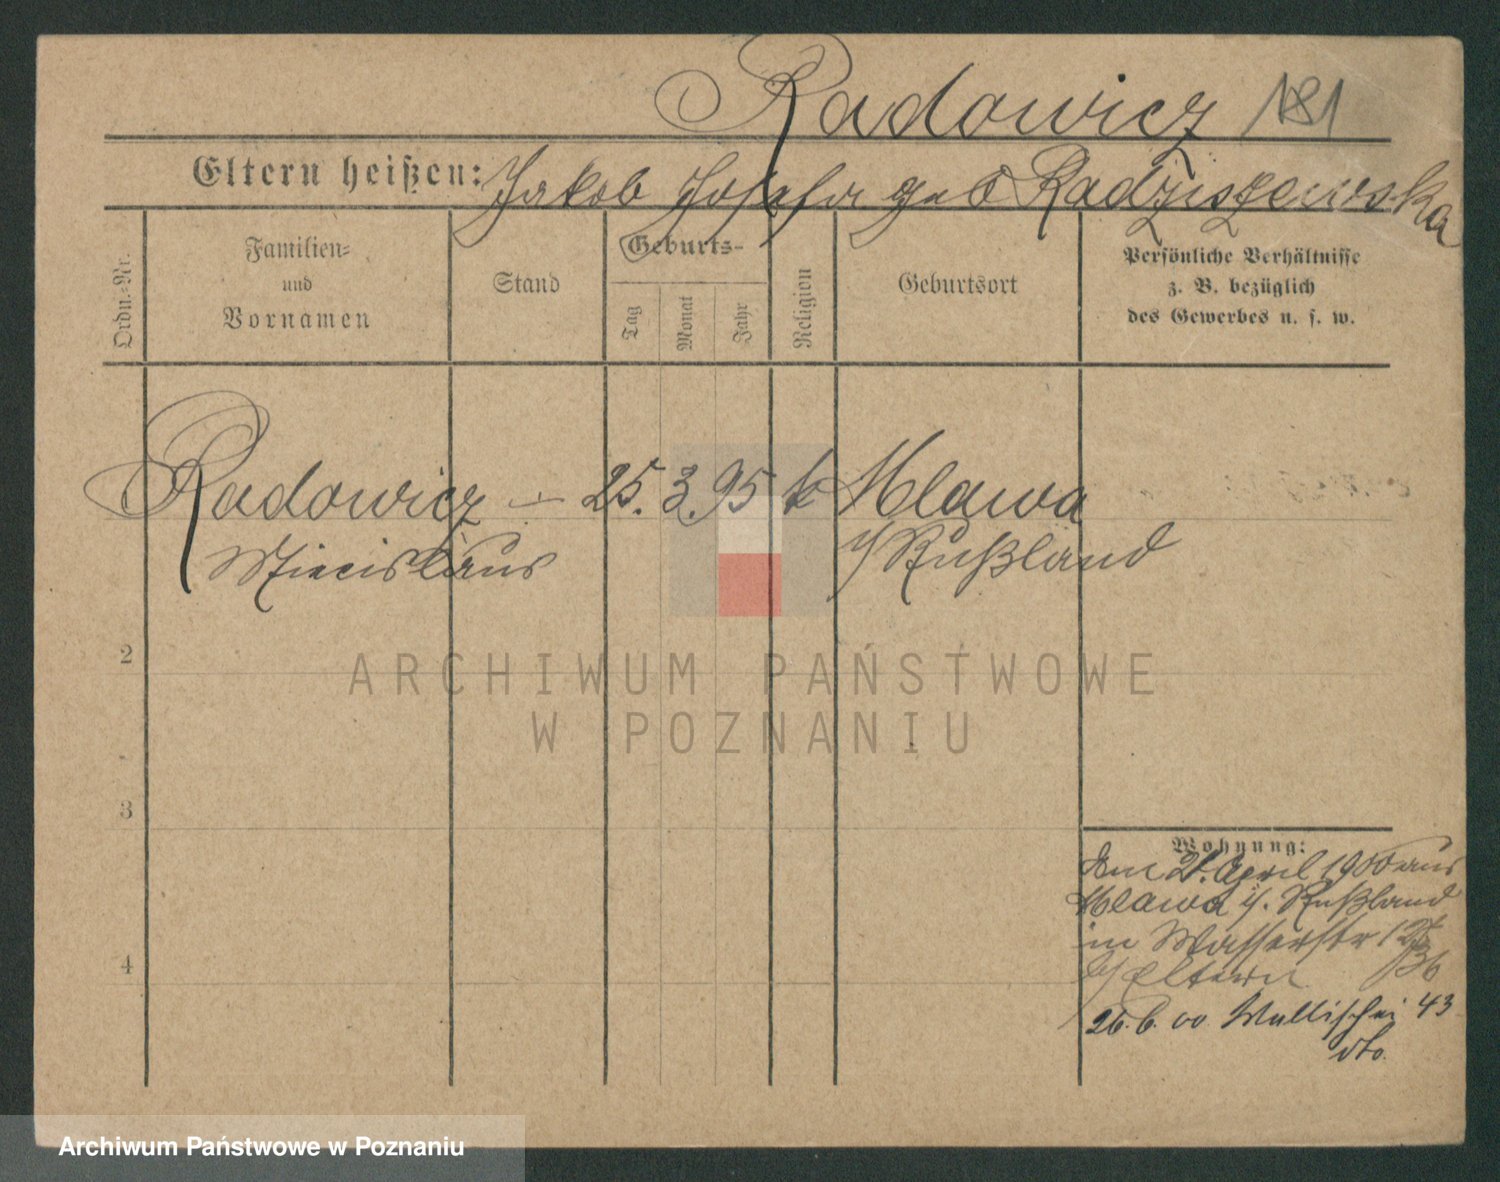 Radowicz 181
Eltern heißen: Jakob Josefa geb Radziszewska
Ordn.-Nr.
Familien-
und
Vornamen
Stand
Geburts-
Tag
Monat
Jahr
Religion
Geburtsort
Persönliche Verhältnisse
z. B. bezüglich
des Gewerbes u. s. w.
Radowicz — 25. 3. 95 k Mlawa
Miecislaus i/Rußland
2
3
4
Wohnung:
Am 21. April 1900 aus
Mlawa i/. Rußland
in Wasserstr
b/Eltern
26.6.00 Wallischei 43
dto.
ARCHIWUM PAŃSTWOWE
W POZNANIU
Archiwum Państwowe w Poznaniu